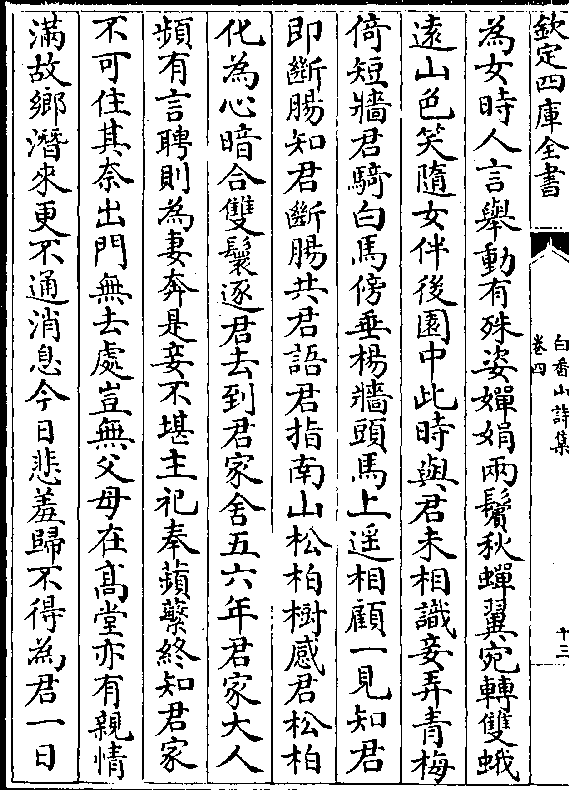 欽定四庫全書
白香山詩集
卷四
十三
為女時人言舉動有殊姿嬋娟兩鬢秋蟬翼宛轉雙蛾
遠山色笑隨女伴後園中此時與君未相識妾弄青梅
倚短牆君騎白馬傍垂楊牆頭馬上遥相顧一見知君
即斷腸知君斷腸共君語君指南山松柏樹感君松柏
化為心暗合雙鬟逐君去到君家舍五六年君家大人
頻有言聘則為妻奔是妾不堪主祀奉蘋蘩終知君家
不可住其奈出門無去處豈無父母在髙堂亦有親情
滿故鄉潛來更不通消息今日悲羞歸不得為君一日